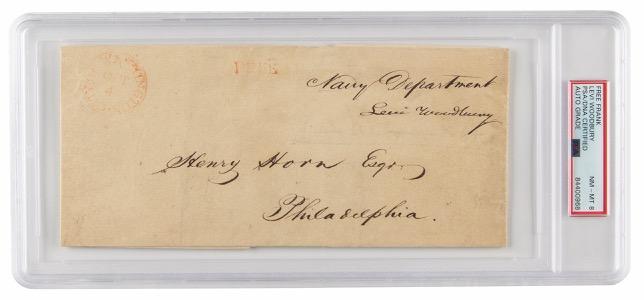 FREE
Navy Department
Levi Woodbury
Henry Horn Esqr
Philadelphia.
FREE FRANK
LEVI WOODBURY
PSA/DNA CERTIFIED
AUTO GRADE
NM - MT 8
84400968